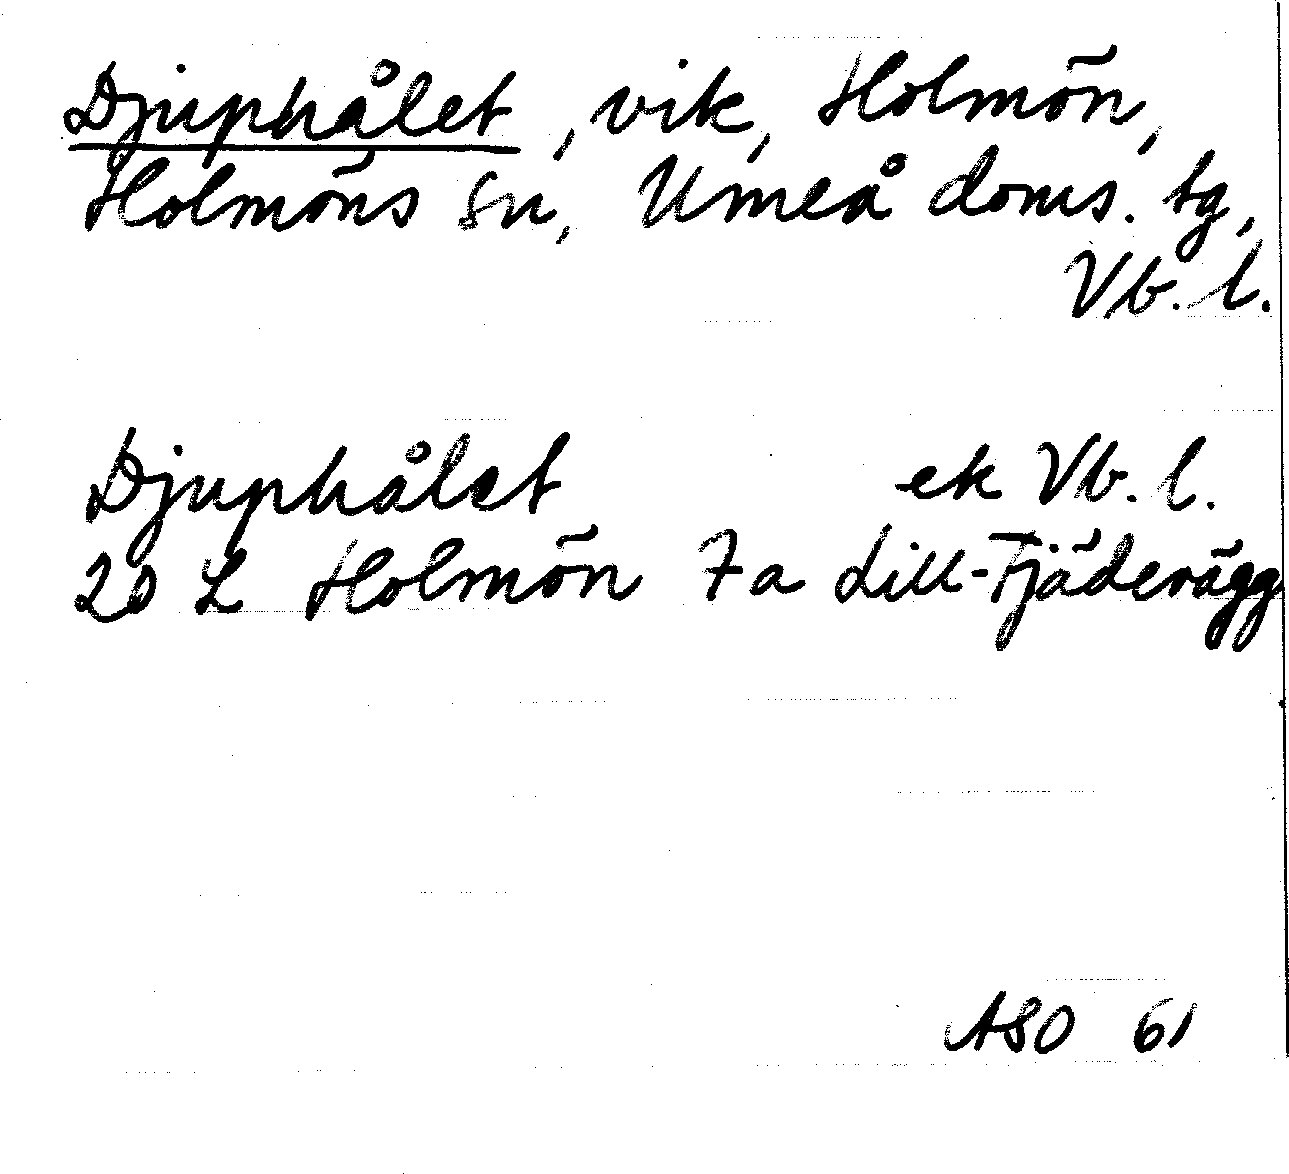 Djuphålet, vik, Holmön,
Holmöns sn, Umeå doms. tg,
Vb. l.
Djuphålet ek Vb. l.
20 L Holmön 7a Lill-Fjäderägg
ASO 61